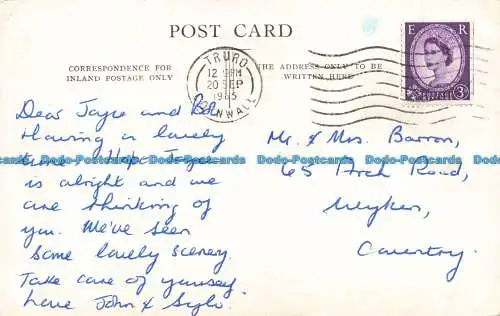 POST CARD
CORRESPONDENCE FOR
INLAND POSTAGE ONLY
THE ADDRESS ONLY TO BE
WRITTEN HERE
TRURO
12 PM
20 SEP
1965
CORNWALL
E R
POSTAGE
REVENUE
3D
Dear Joyce and Bob
Having a lovely
time. Hope Joyce
is alright and we
are thinking of
you. We've seen
some lovely scenery.
Take care of yourself
Love John &
Mr. & Mrs Barron,
65 Arch Road,
Wyken,
Coventry.
Dodo-Postcards Dodo-Postcards Dodo-Postcards Dodo-Postcards Dodo-Postcards